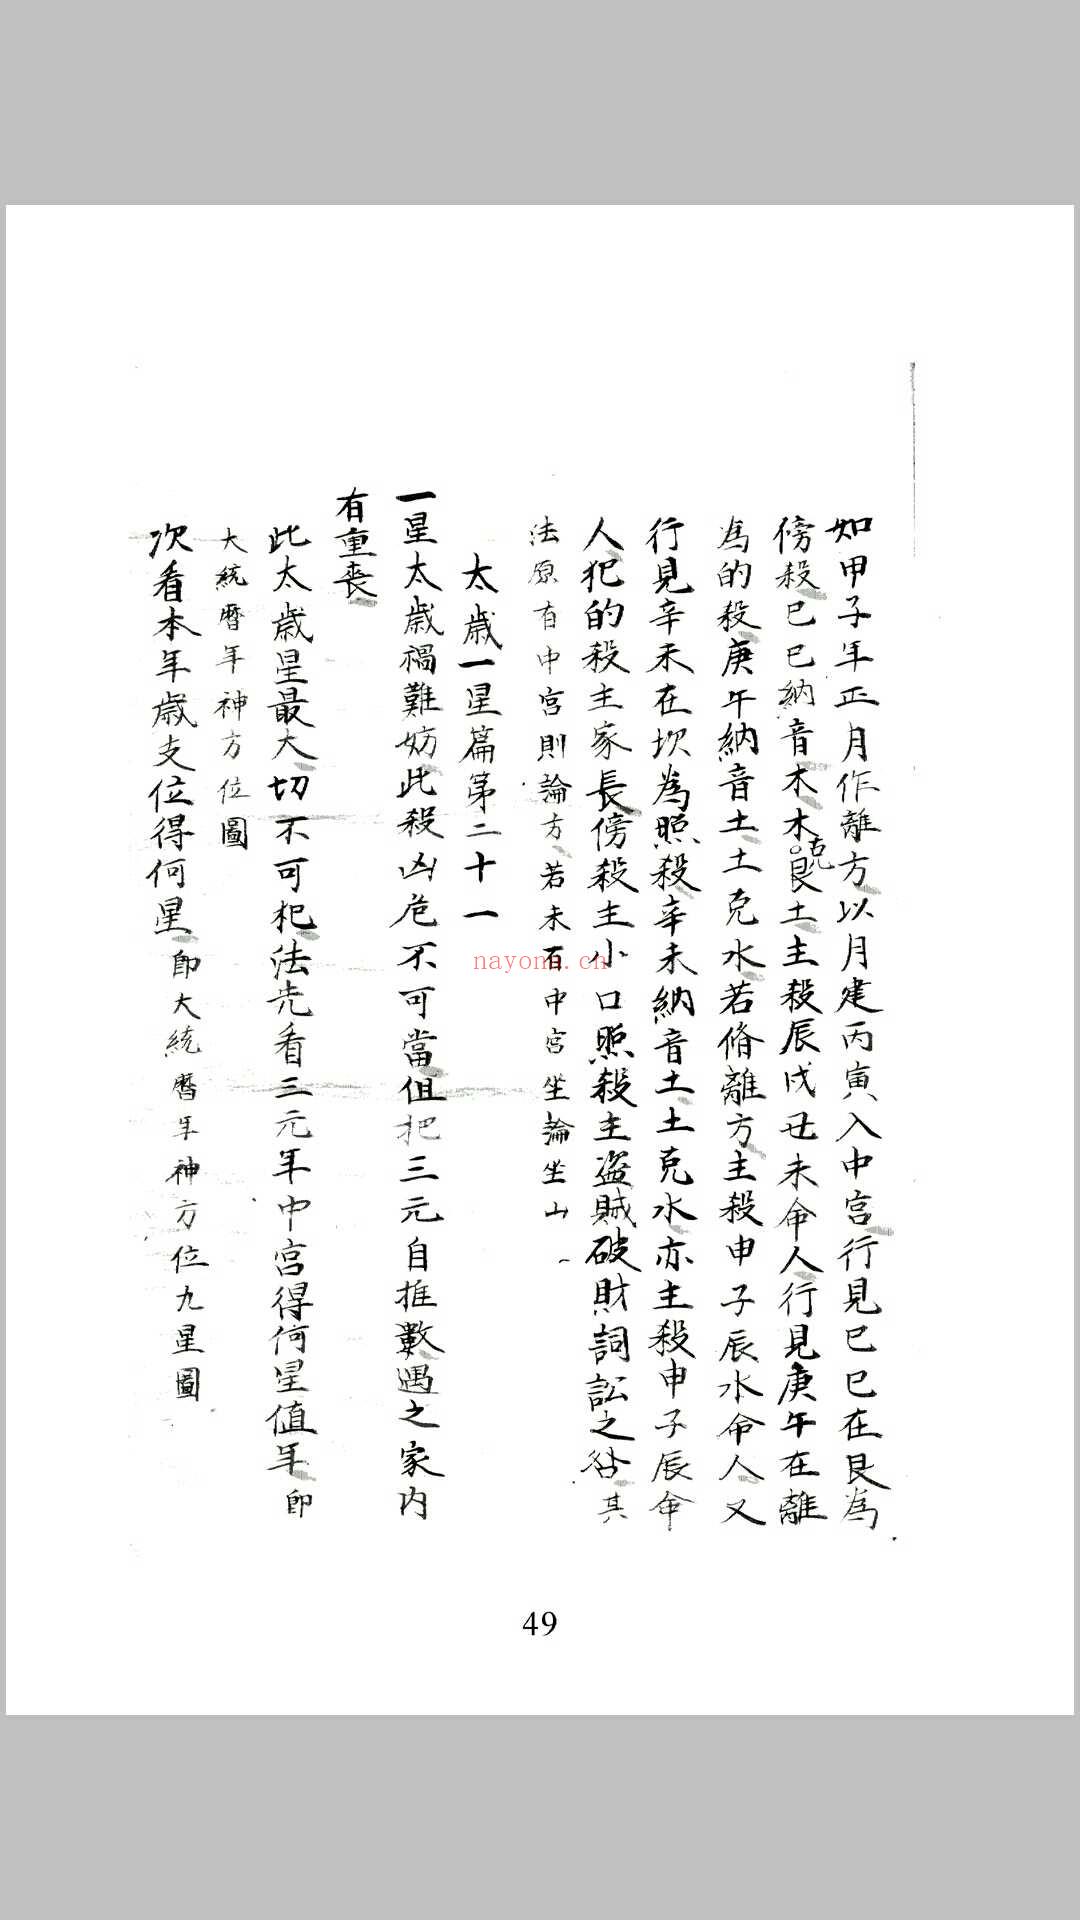 如甲子年正月作離方以月建丙寅入中宮行見己巳在艮為
傍殺己巳納音木木克艮土主殺辰戌丑未命人行見庚午在離
為的殺庚午納音土土克水若脩離方主殺申子辰水命人又
行見辛未在坎為照殺辛未納音土土克水亦主殺申子辰命
人犯的殺主家長傍殺主小口照殺主盜賊破財詞訟之咎其
法原有中宮則論方若未有中宮坐論坐山
太歲一星篇第二十一
一星太歲禍難妨此殺凶危不可當但把三元自推數遇之家內
有重喪
此太歲星最大切不可犯法先看三元年中宮得何星值年即
大統曆年神方位圖
次看本年歲支位得何星即大統曆年神方位九星圖
nayona.cn
49